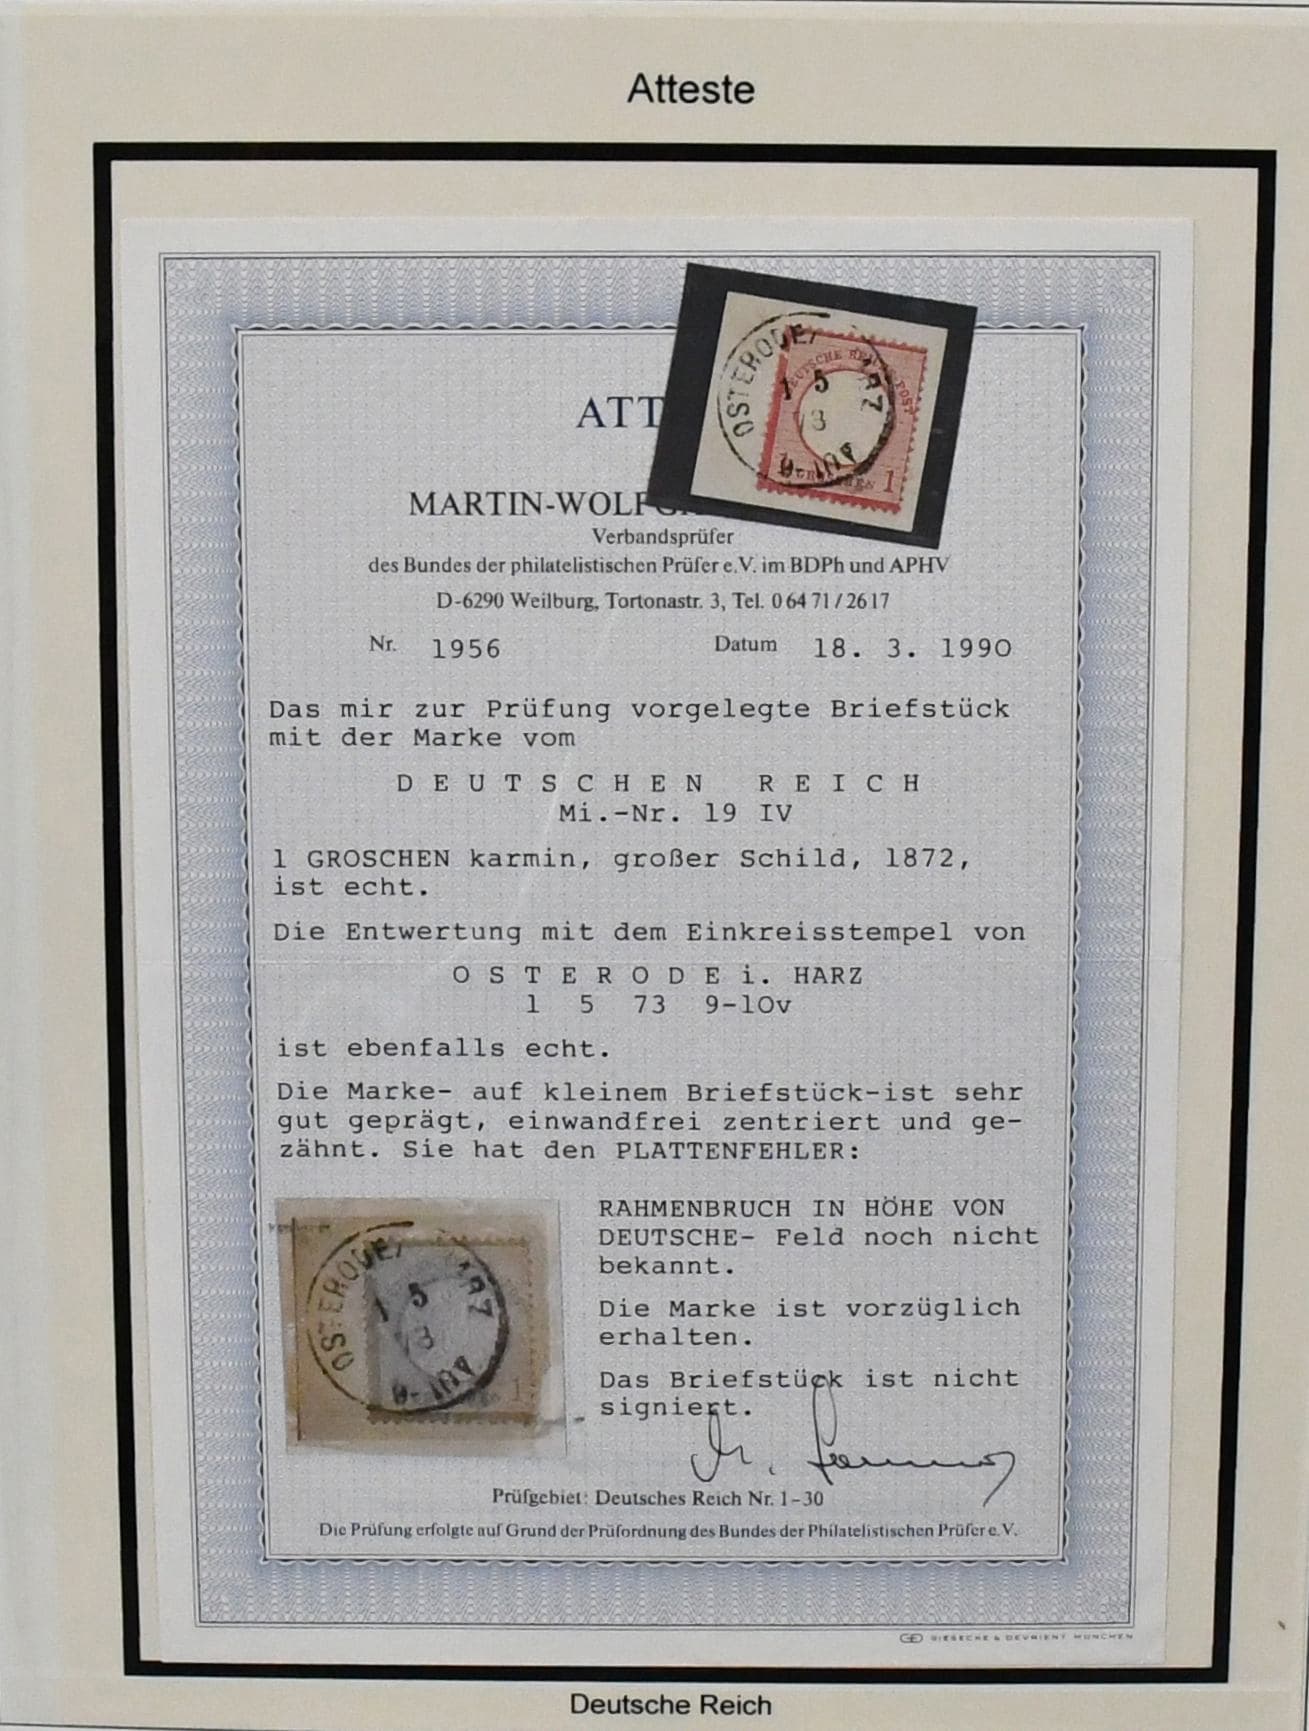 Atteste
OSTERODE/ HARZ
1 5
73
9-10V
DEUTSCHE REICHS POST
1 GROSCHEN 1
ATT
MARTIN-WOLFG
Verbandsprüfer
des Bundes der philatelistischen Prüfer e.V. im BDPh und APHV
D-6290 Weilburg, Tortonastr. 3, Tel. 0 64 71 / 26 17
Nr. 1956 Datum 18. 3. 1990
Das mir zur Prüfung vorgelegte Briefstück
mit der Marke vom
D E U T S C H E N R E I C H
Mi.-Nr. 19 IV
1 GROSCHEN karmin, großer Schild, 1872,
ist echt.
Die Entwertung mit dem Einkreisstempel von
O S T E R O D E i. HARZ
1 5 73 9-10v
ist ebenfalls echt.
Die Marke- auf kleinem Briefstück-ist sehr
gut geprägt, einwandfrei zentriert und ge-
zähnt. Sie hat den PLATTENFEHLER:
RAHMENBRUCH IN HÖHE VON
DEUTSCHE- Feld noch nicht
bekannt.
Die Marke ist vorzüglich
erhalten.
Das Briefstück ist nicht
signiert.
OSTERODE/ HARZ
1 5
73
9-10V
1
Prüfgebiet: Deutsches Reich Nr. 1-30
Die Prüfung erfolgte auf Grund der Prüfordnung des Bundes der Philatelistischen Prüfer e. V.
GIESECKE & DEVRIENT MÜNCHEN
Deutsche Reich